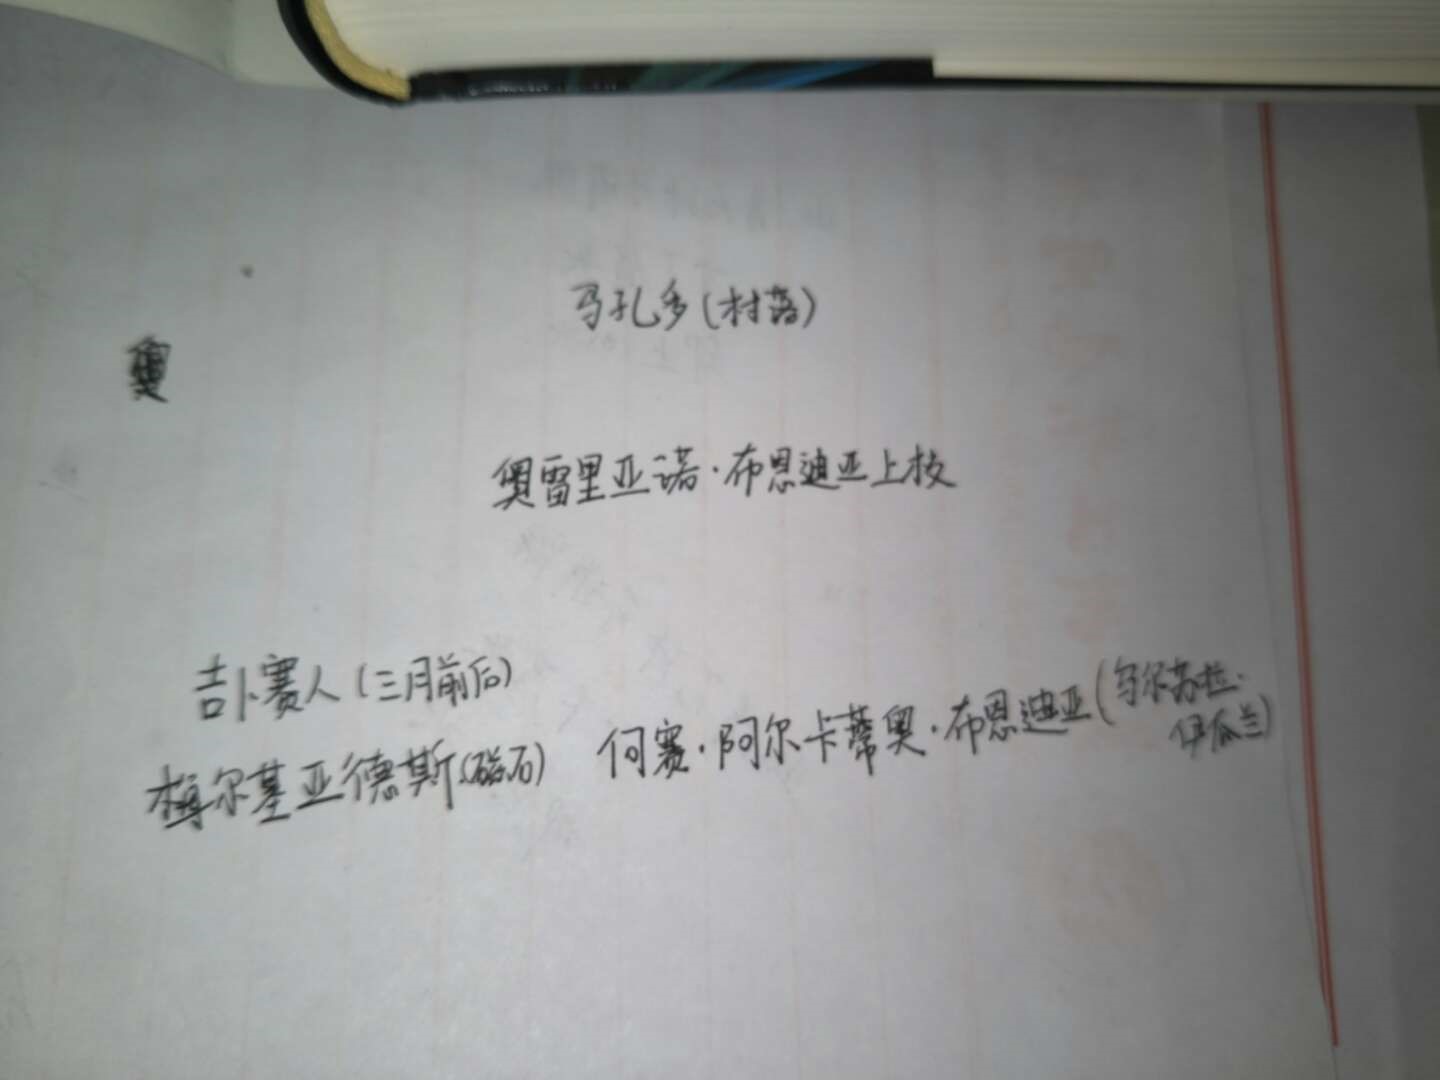 马孔多(村落)
奥雷里亚诺·布恩迪亚上校
吉卜赛人(三月前后)
梅尔基亚德斯(磁石)
何赛·阿尔卡蒂奥·布恩迪亚(乌尔苏拉·
伊瓜兰)